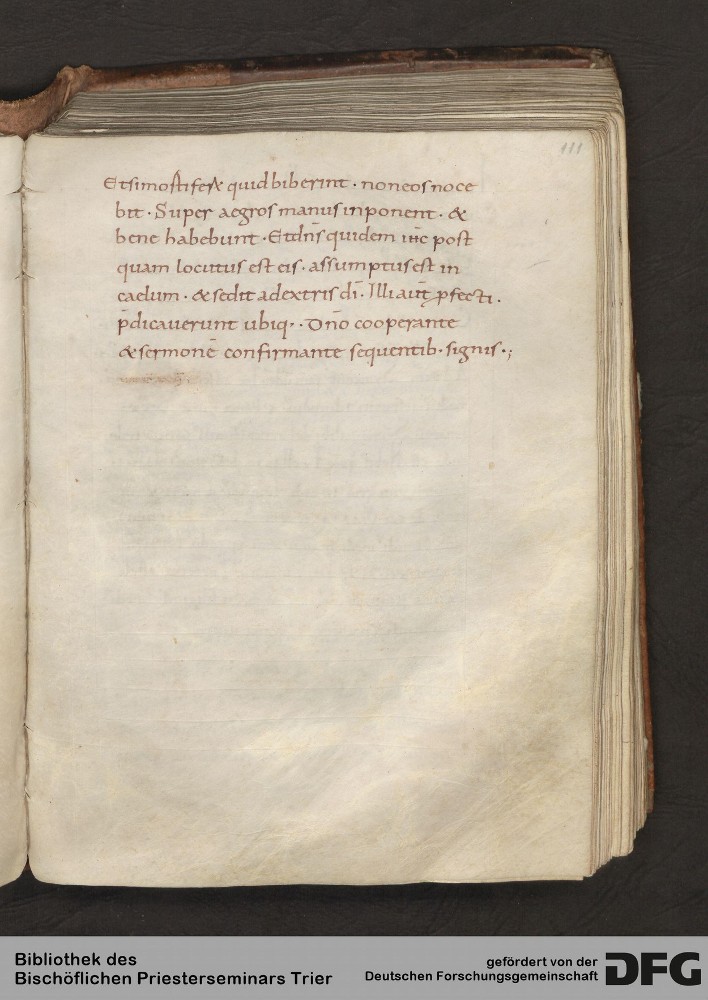 111
Et si mortiferū quid biberint · non eos noce
bit · Super aegros manus inponent · &
bene habebunt · Et dn̄s quidem ih̄c post
quam locutus est eis · assumptus est in
caelum · & sedit adextris dī · Illi aut̄ ꝓfecti ·
p̄dicauerunt ubiq; · Dn̄o cooperante
& sermonē confirmante sequentib· signis · ;
Bibliothek des
Bischöflichen Priesterseminars Trier
gefördert von der
Deutschen Forschungsgemeinschaft
DFG